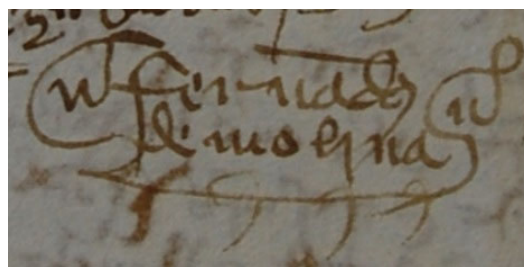 fernando
de molina